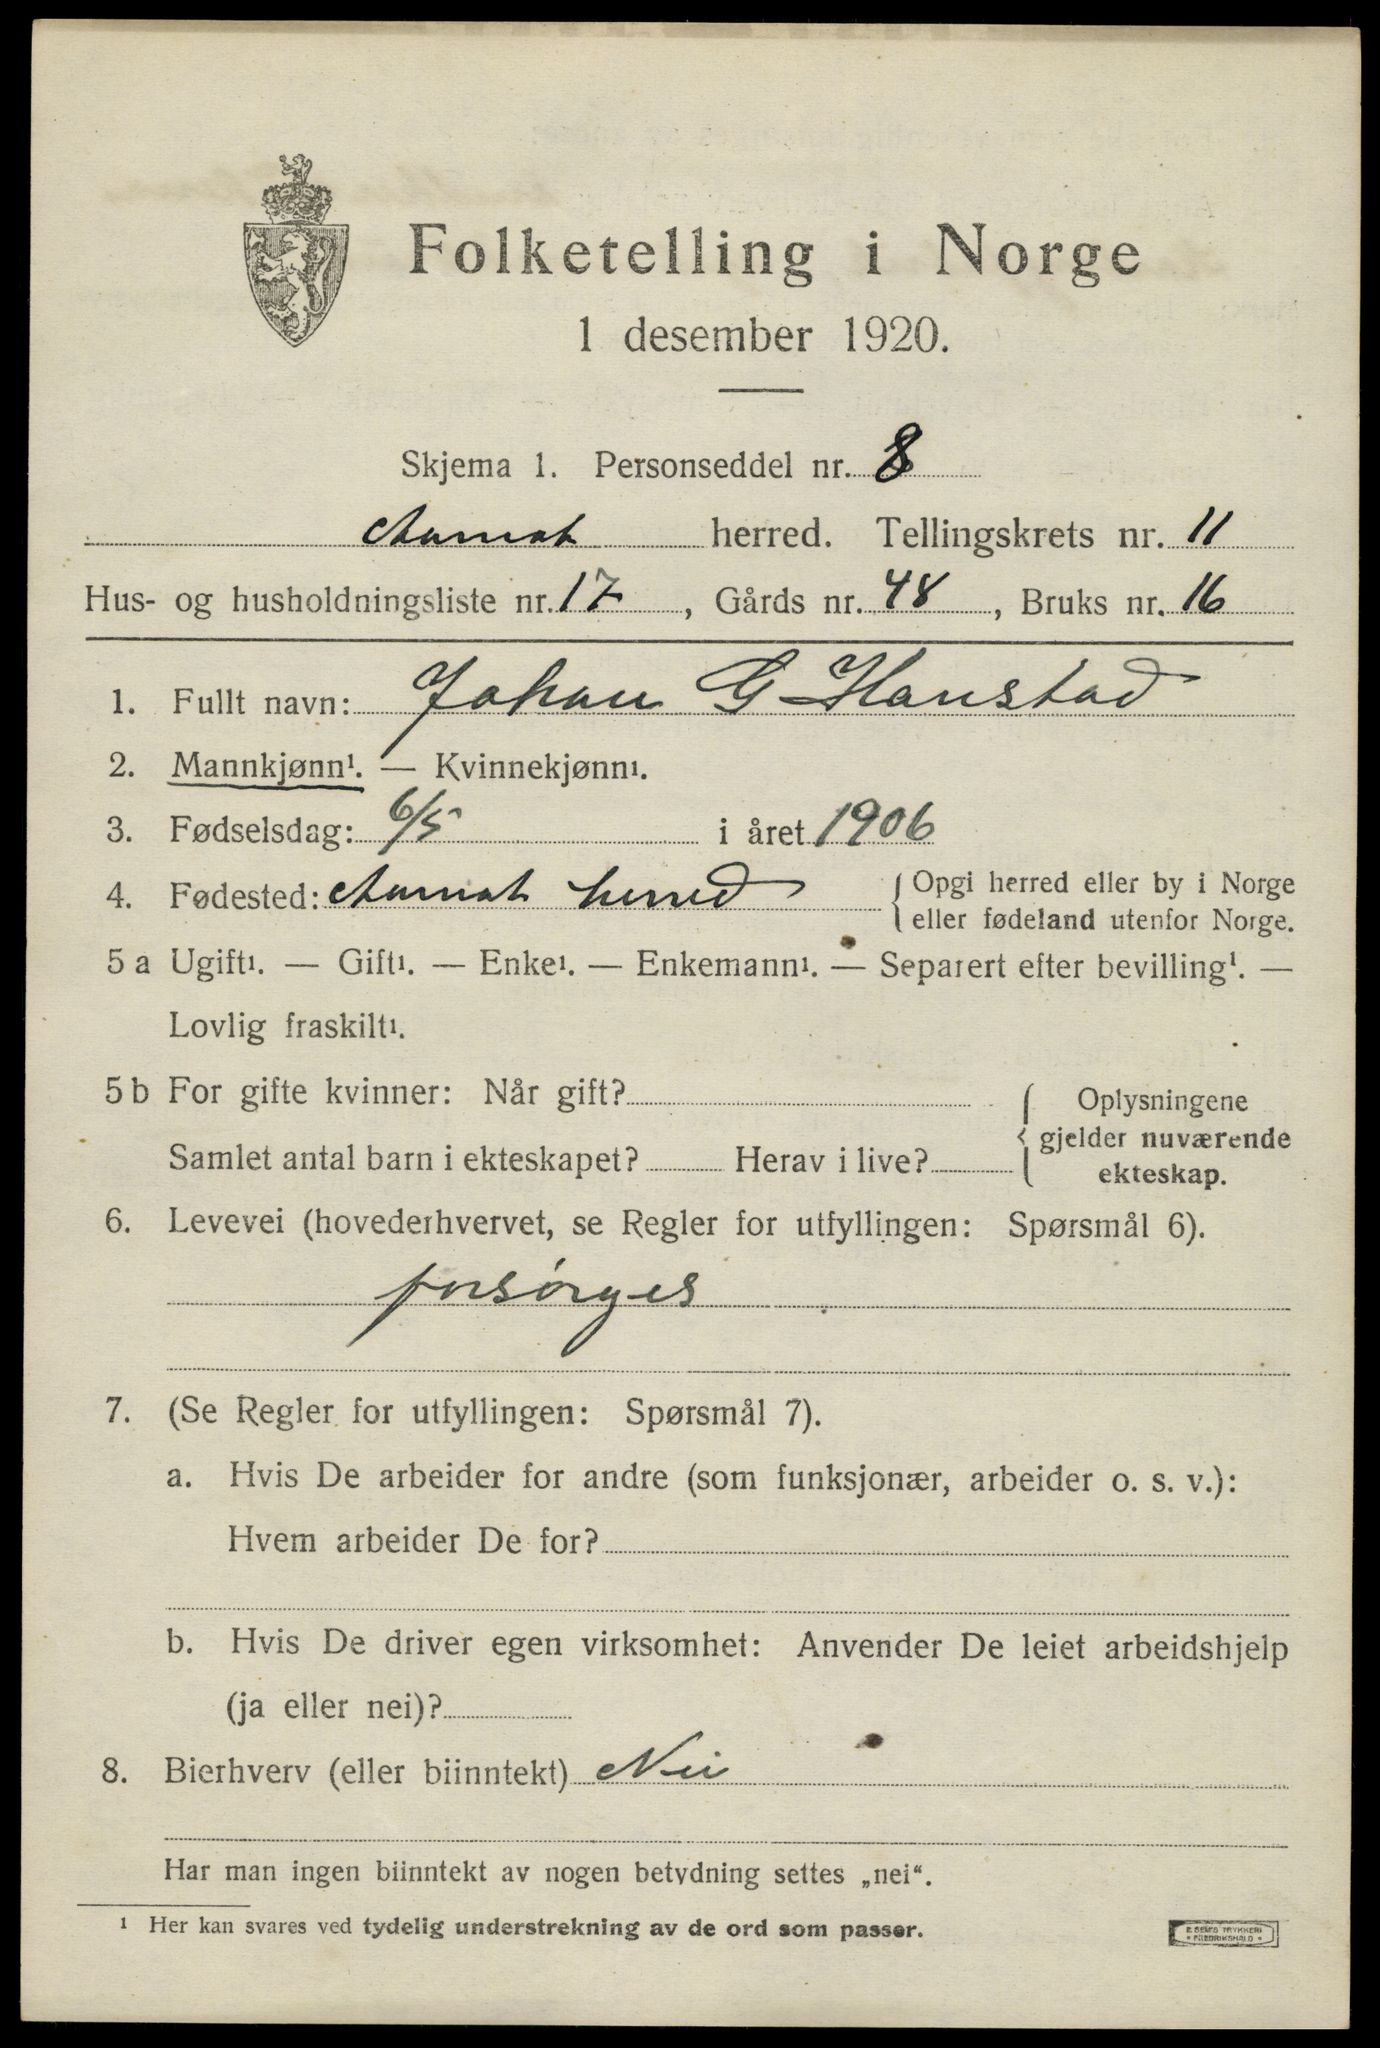 Folketelling i Norge
1 desember 1920.
Skjema 1. Personseddel nr. 8
Aamot herred. Tellingskrets nr. 11
Hus- og husholdningsliste nr. 17, Gårds nr. 48, Bruks nr. 16
1. Fullt navn: Johan G Hanstad
2. Mannkjønn¹. — Kvinnekjønn¹.
3. Fødselsdag: 6/5 i året 1906
4. Fødested: Aamot herred { Opgi herred eller by i Norge
eller fødeland utenfor Norge.
5 a Ugift¹. — Gift¹. — Enke¹. — Enkemann¹. — Separert efter bevilling¹. —
Lovlig fraskilt¹.
5 b For gifte kvinner: Når gift?
Samlet antal barn i ekteskapet? Herav i live?
{ Oplysningene
gjelder nuværende
ekteskap.
6. Levevei (hovederhvervet, se Regler for utfyllingen: Spørsmål 6).
forsørges
7. (Se Regler for utfyllingen: Spørsmål 7).
a. Hvis De arbeider for andre (som funksjonær, arbeider o. s. v.):
Hvem arbeider De for?
b. Hvis De driver egen virksomhet: Anvender De leiet arbeidshjelp
(ja eller nei)?
8. Bierhverv (eller biinntekt) Nei
Har man ingen biinntekt av nogen betydning settes „nei“.
¹ Her kan svares ved tydelig understrekning av de ord som passer.
E SEMS TRYKKERI
• FREDRIKSHALD •